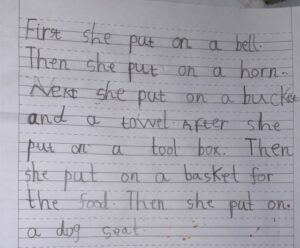 First she put on a bell.
Then she put on a horn.
Next she put on a bucket
and a towel. After she
put on a tool box. Then
she put on a basket for
the food. Then she put on.
a dog seat.